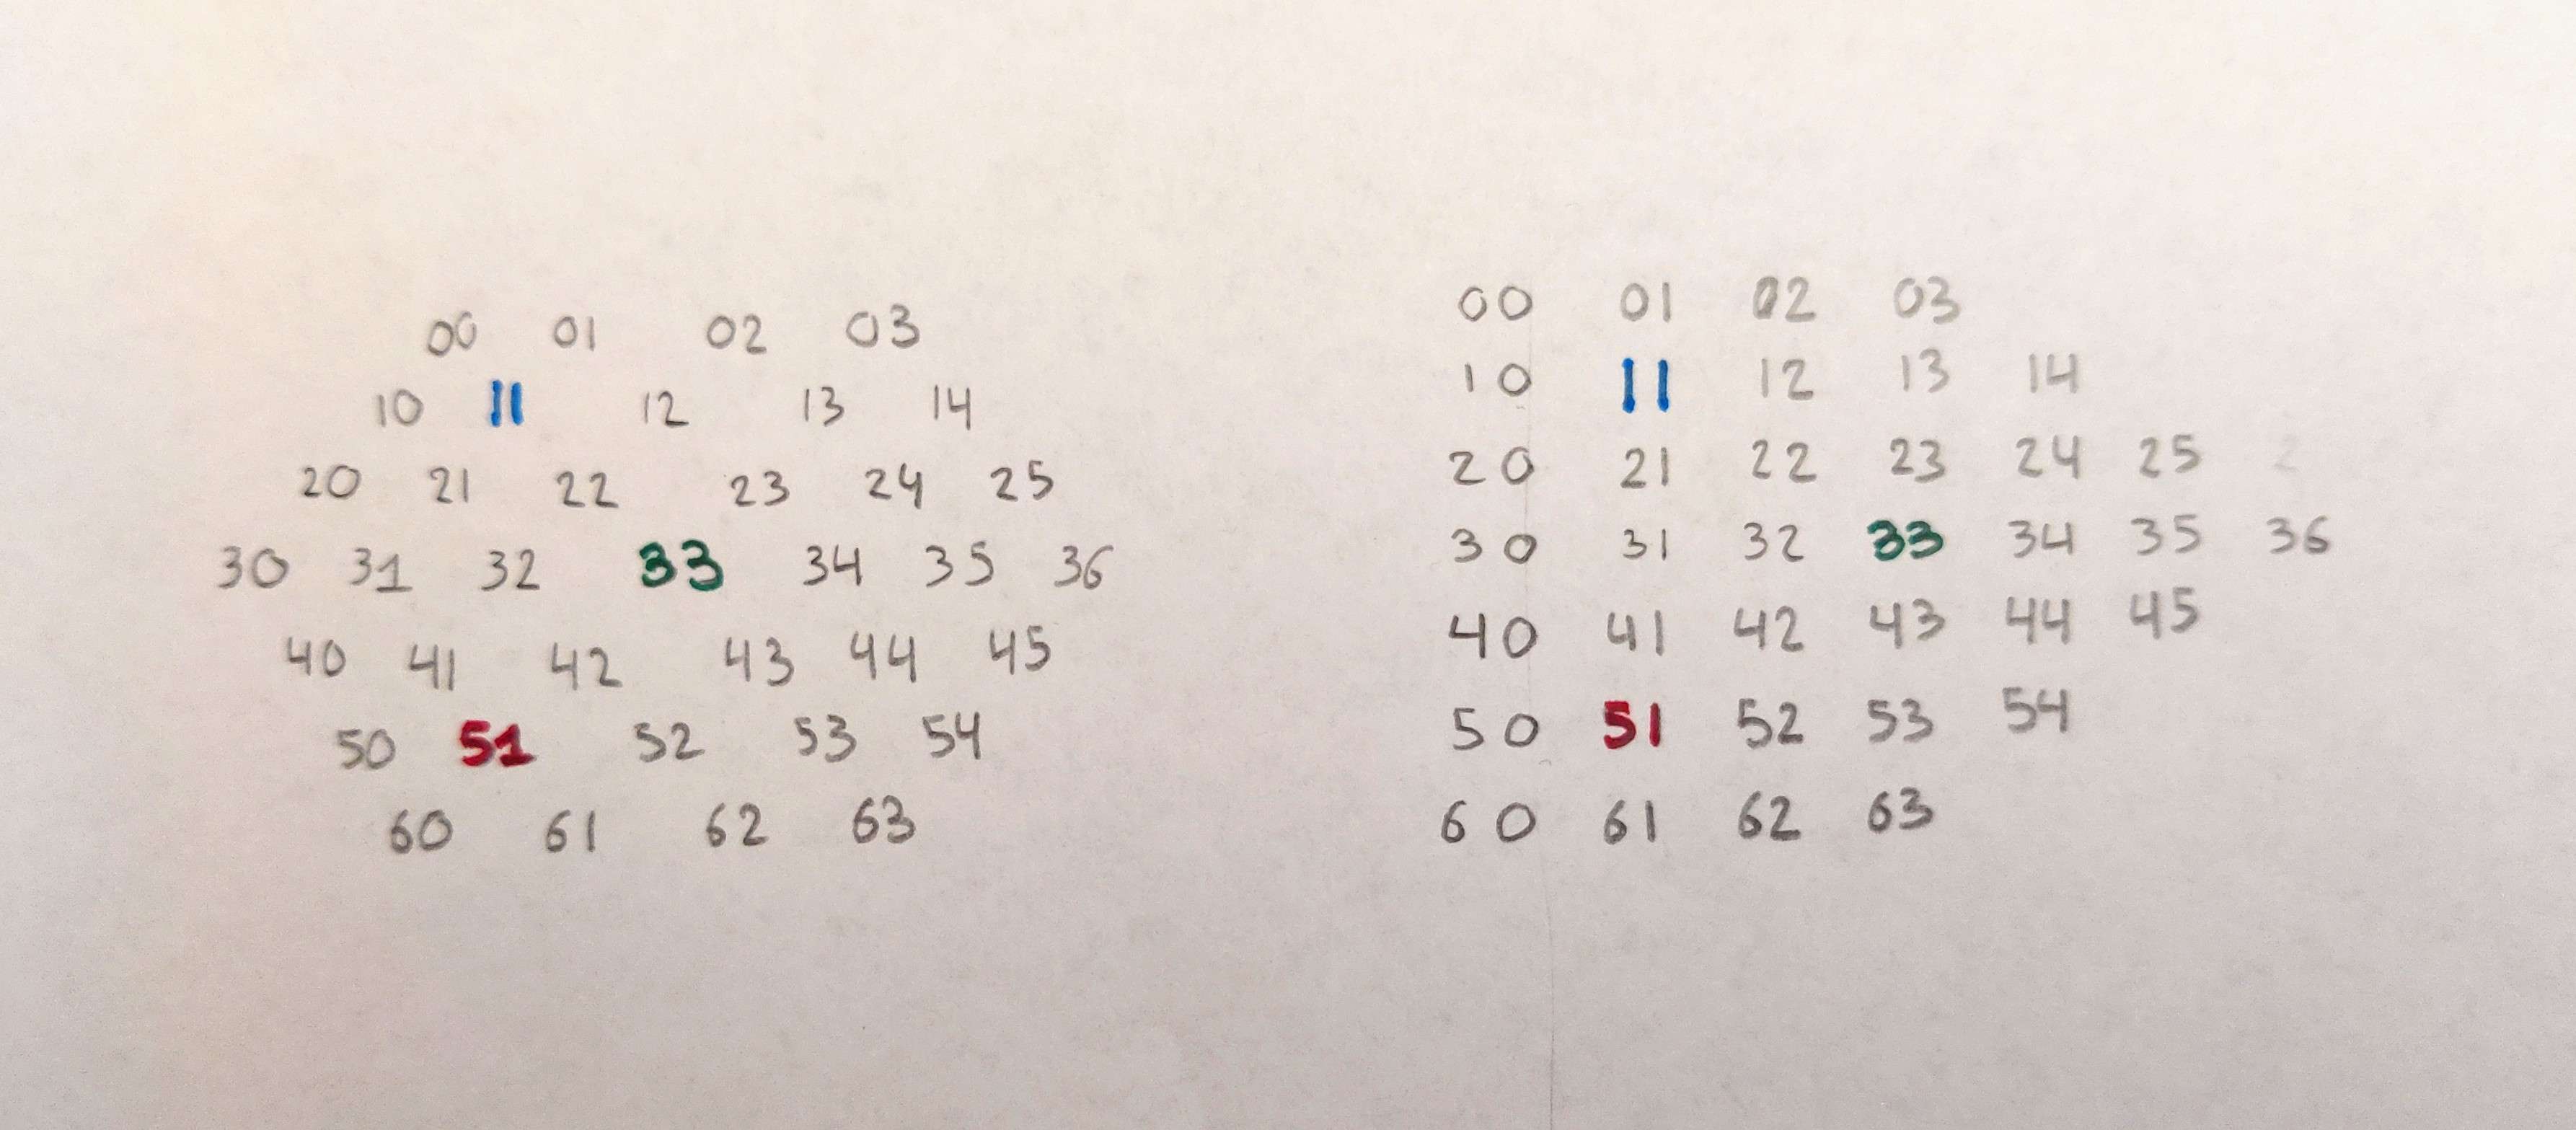 00 01 02 03
10 11 12 13 14
20 21 22 23 24 25
30 31 32 33 34 35 36
40 41 42 43 44 45
50 51 52 53 54
60 61 62 63
00 01 02 03
10 11 12 13 14
20 21 22 23 24 25 2
30 31 32 33 34 35 36
40 41 42 43 44 45
50 51 52 53 54
60 61 62 63